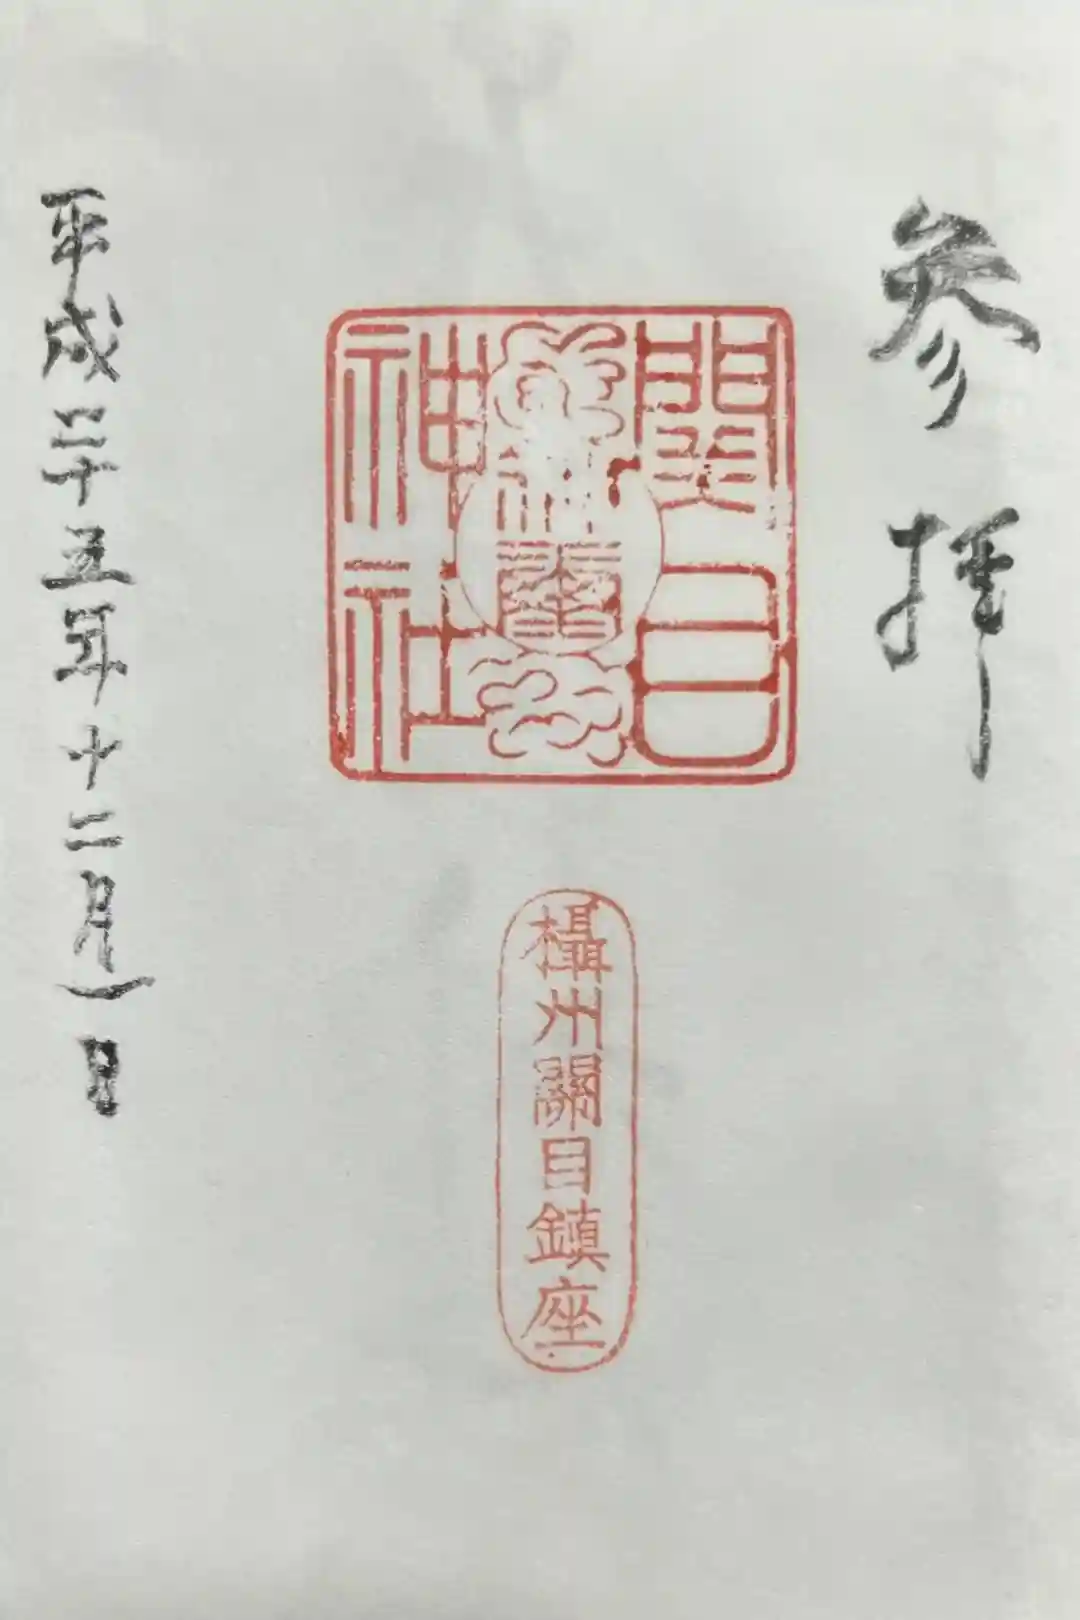 参拝
関目
神社
神璽
攝州關目鎮座
平成二十五年十二月一日